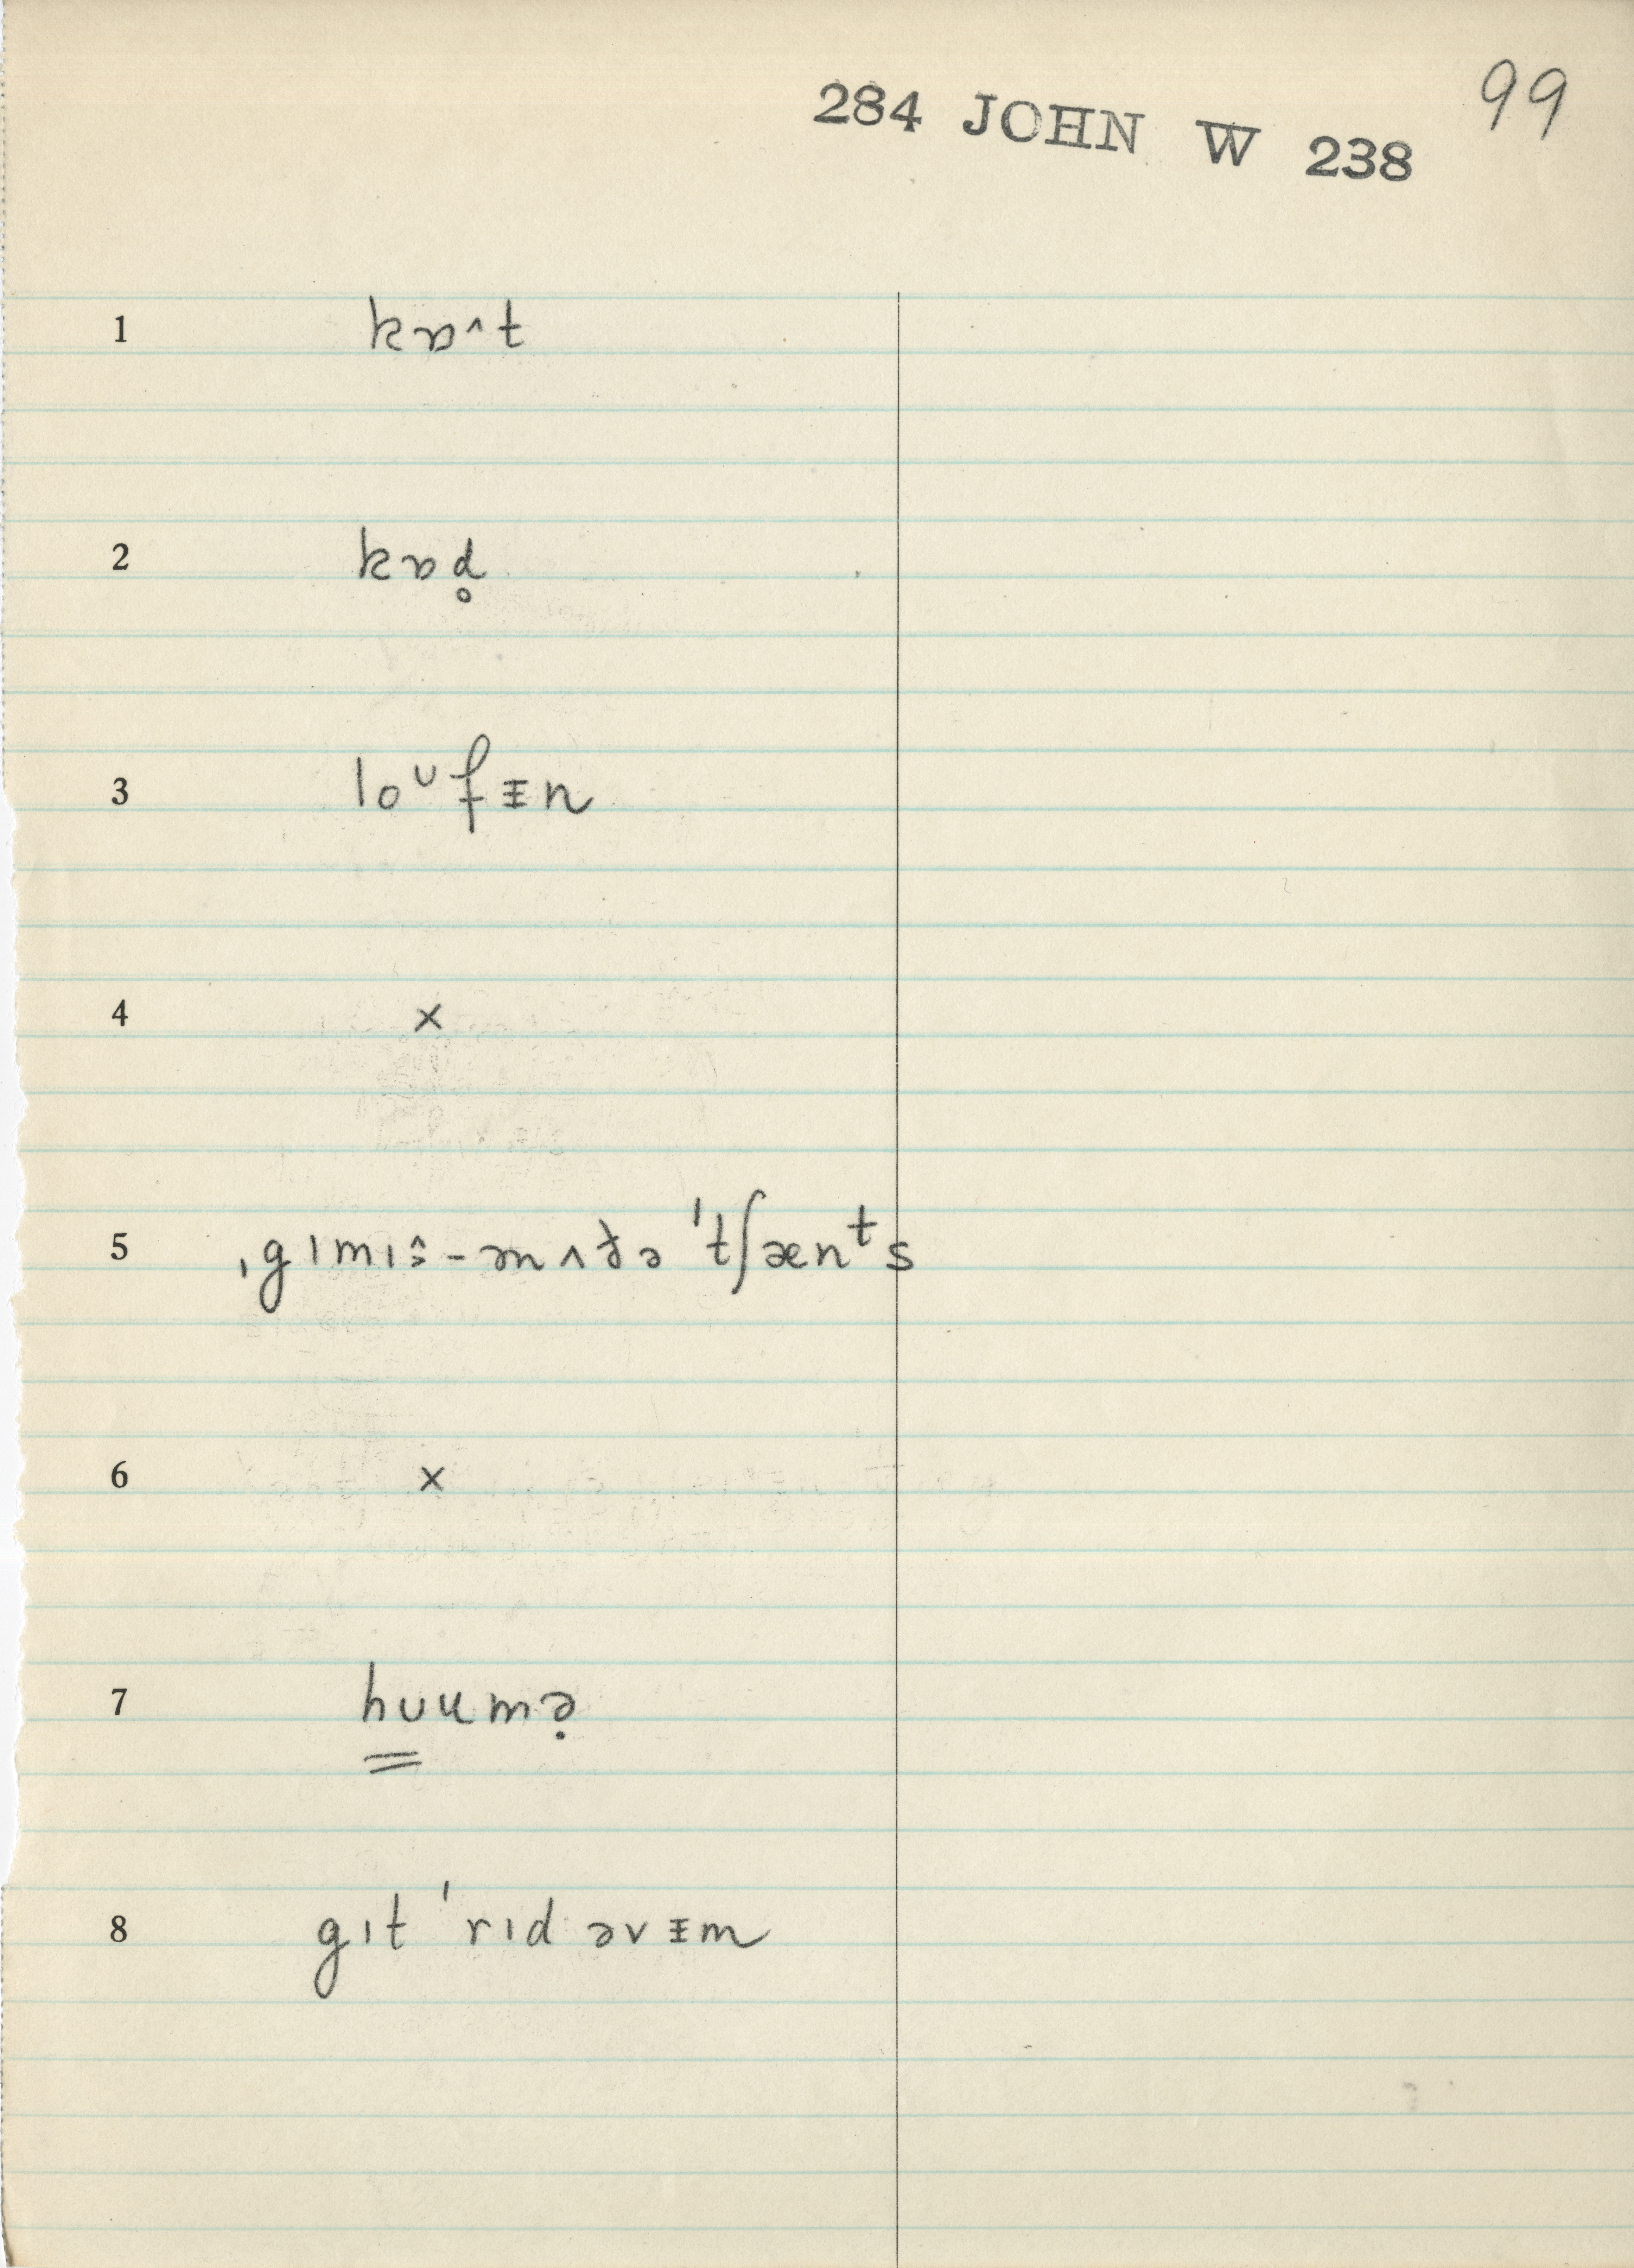 284 JOHN W 238 99
1 kɒ˄t
2 kɒd̥
3 loᶷfᵻn
4 ×
5 ˌgɪmɪˑ̂-ənʌðə ˈtʃænᵗs
6 ×
7 hʊumə̣
8 gɪt ˈrɪd əvᵻm